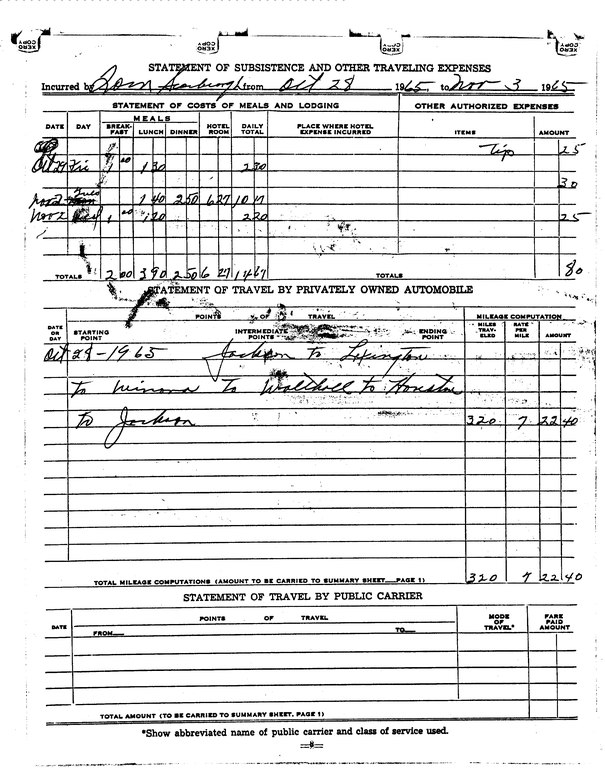 XERO COPY XERO COPY XERO COPY XERO COPY
STATEMENT OF SUBSISTENCE AND OTHER TRAVELING EXPENSES
Incurred by Tom Scarbrough from Oct 28 1965, to Nov 3 1965
STATEMENT OF COSTS OF MEALS AND LODGING OTHER AUTHORIZED EXPENSES
DATE DAY MEALS BREAK-FAST LUNCH DINNER HOTEL ROOM DAILY TOTAL PLACE WHERE HOTEL EXPENSE INCURRED ITEMS AMOUNT
Tip 25
Oct 29 Fri 1 00 1 30 2 30
30
Nov 2 Tues 1 40 2 50 6 27 10 17
Nov 2 1 00 1 20 2 20 25
TOTALS 2 00 3 90 2 50 6 27 14 67 TOTALS 80
STATEMENT OF TRAVEL BY PRIVATELY OWNED AUTOMOBILE
POINTS OF TRAVEL MILEAGE COMPUTATION
DATE OR DAY STARTING POINT INTERMEDIATE POINTS ENDING POINT MILES TRAV-ELED RATE PER MILE AMOUNT
Oct 28-1965 Jackson to Lexington
to Winona to Walthall to Houston
to Jackson 320 7 22 40
TOTAL MILEAGE COMPUTATIONS (AMOUNT TO BE CARRIED TO SUMMARY SHEET PAGE 1) 320 7 22 40
STATEMENT OF TRAVEL BY PUBLIC CARRIER
DATE POINTS OF TRAVEL MODE OF TRAVEL* FARE PAID AMOUNT
FROM TO
TOTAL AMOUNT (TO BE CARRIED TO SUMMARY SHEET, PAGE 1)
*Show abbreviated name of public carrier and class of service used.